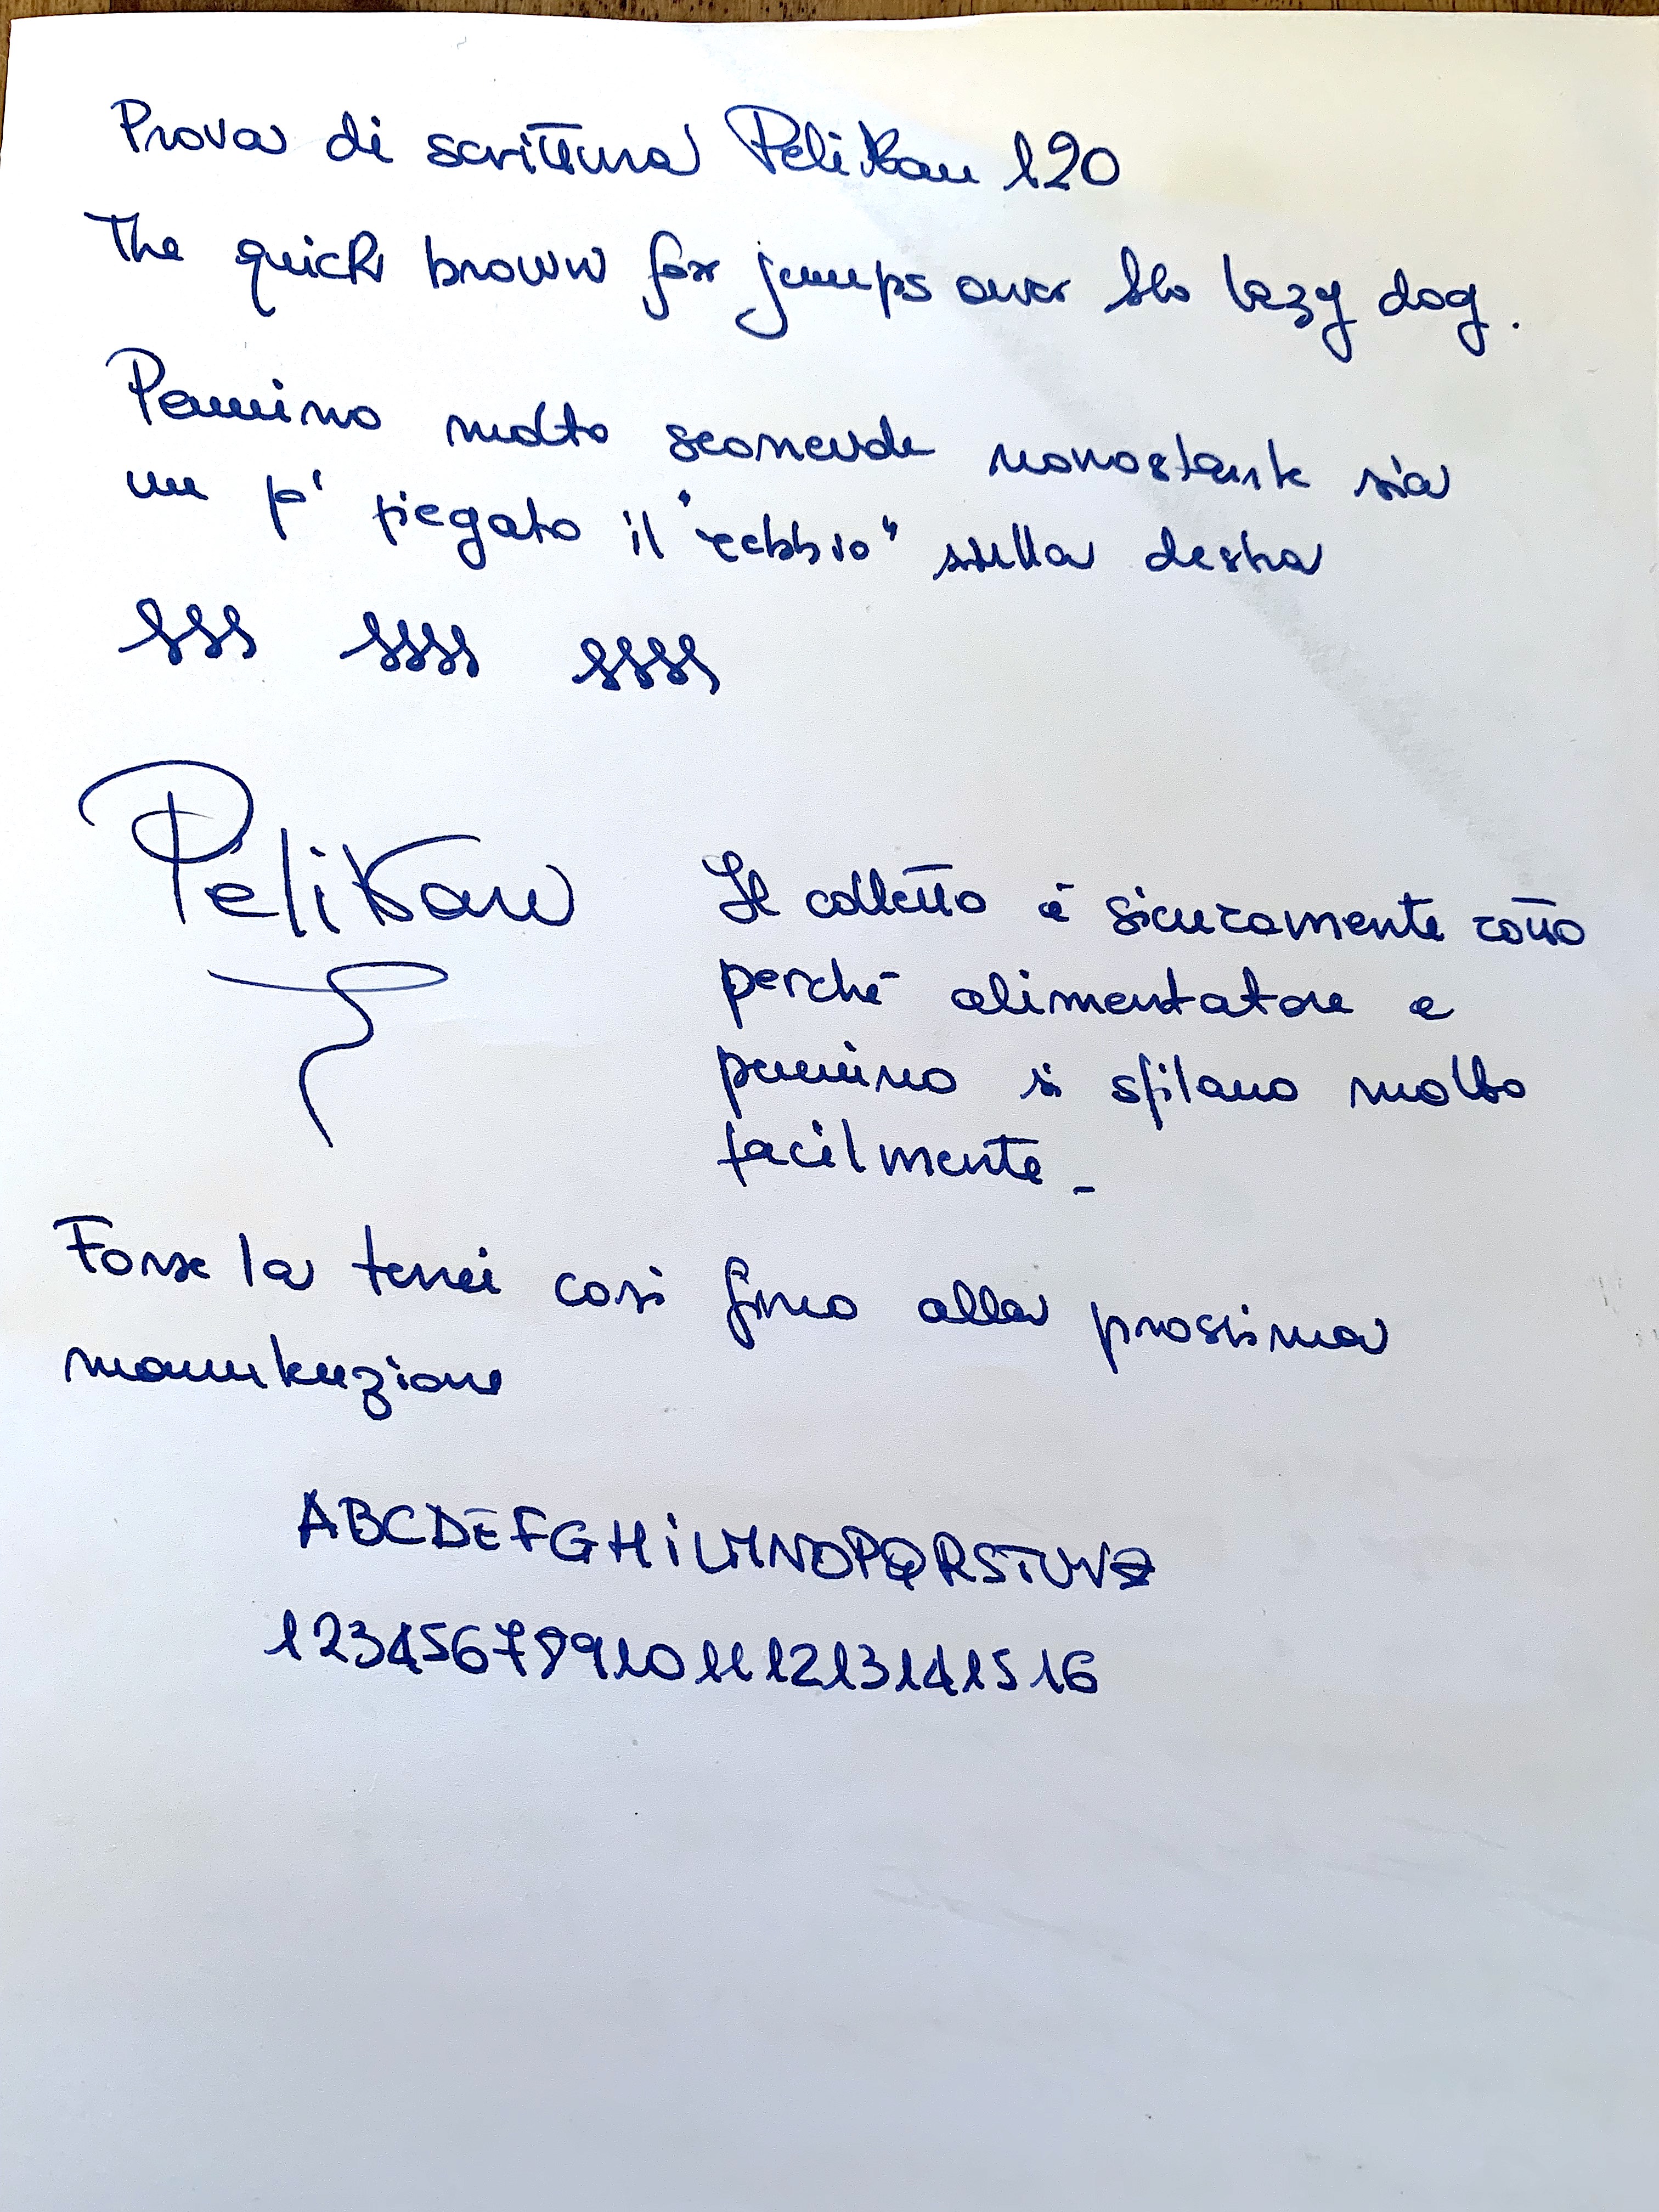 Prova di scrittura Pelikan 120
The quick brown fox jumps over the lazy dog.
Pennino molto scorrevole nonostante sia
un pò piegato il "rebbio" sulla destra
Pelikan
Il colletto è sicuramente rotto
perchè alimentatore e
pennino si sfilano molto
facilmente -
Forse la terrei così fino alla prossima
manutenzione
ABCDEFGHiLMNOPQRSTUVZ
12345678910111213141516